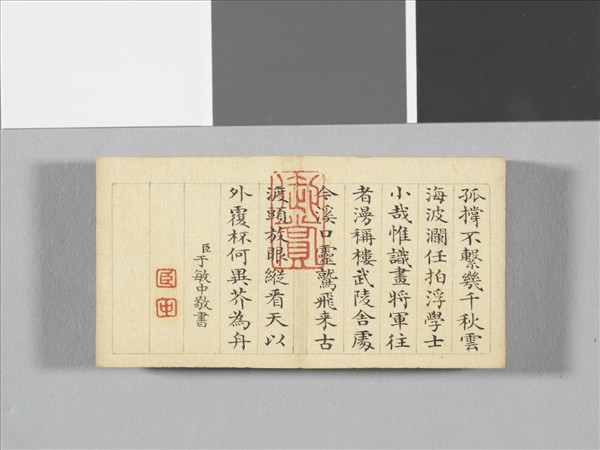 孤撐不繫幾千秋雲
海波瀾任拍浮學士
小哉惟識畫將軍往
者漫稱樓武陵舍處
今溪口靈鷲飛来古
渡頭放眼縱看天以
外覆杯何異芥為舟
臣于敏中敬書
臣
中